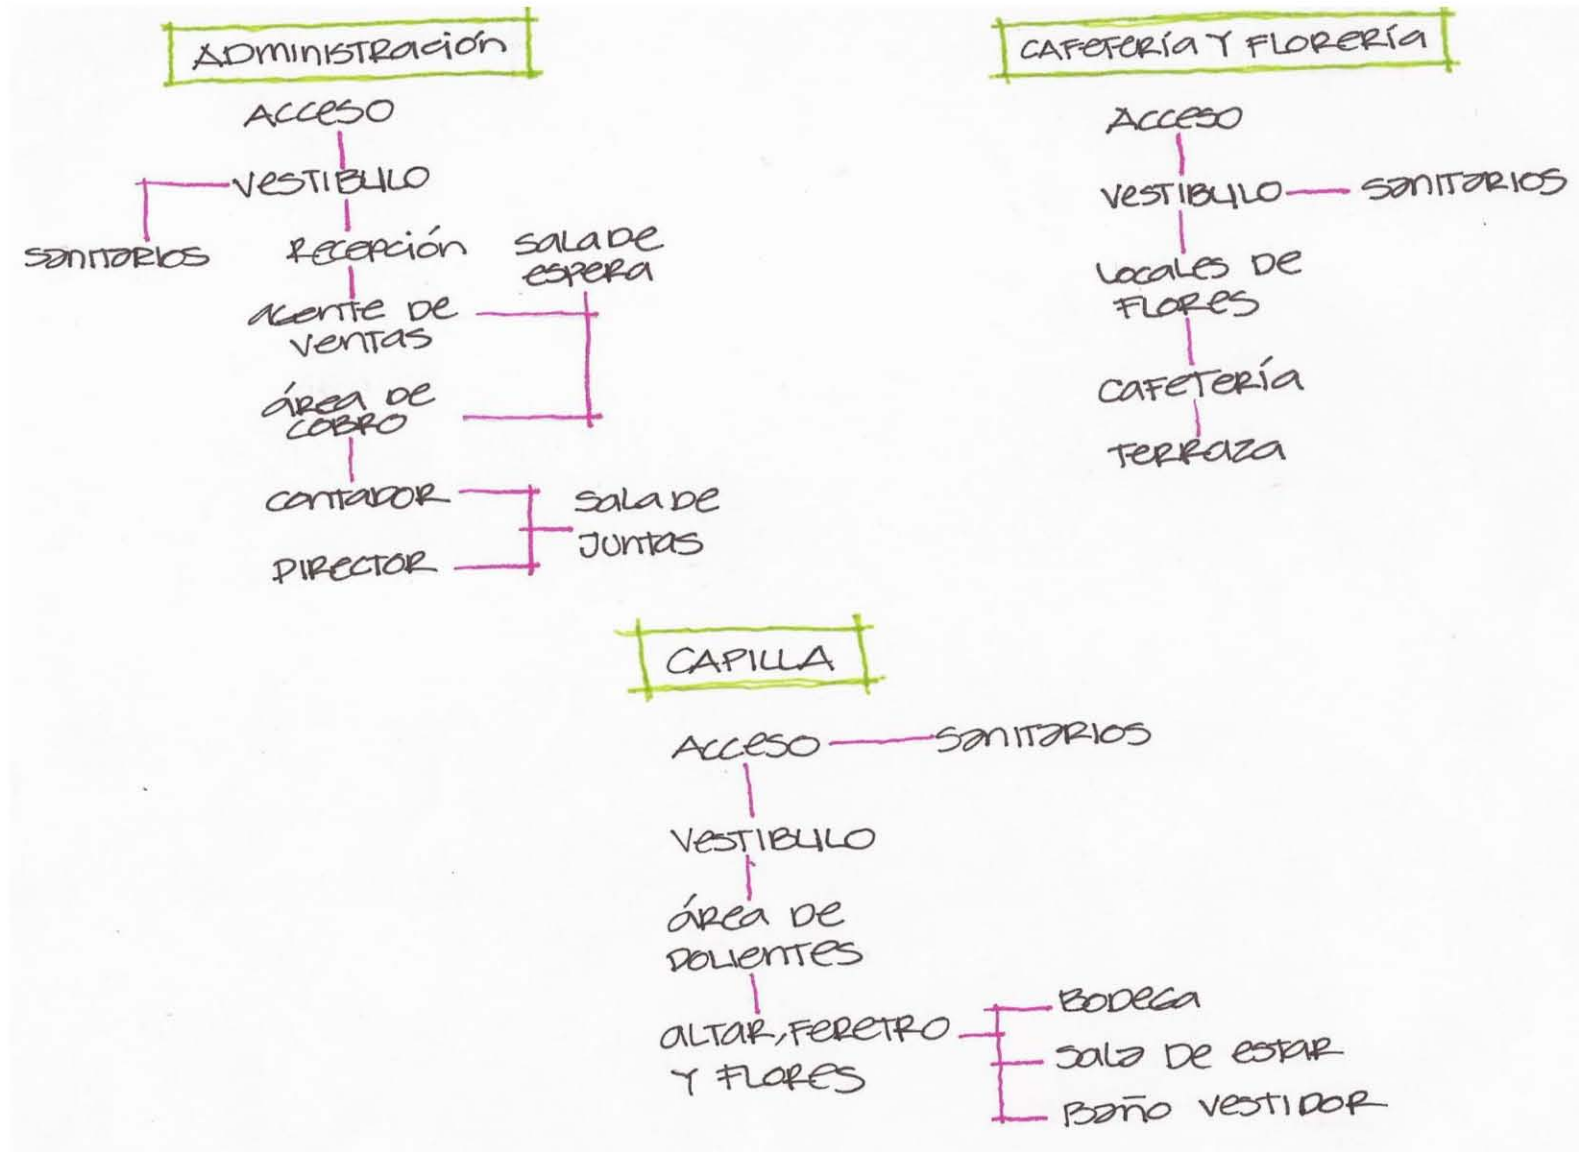 ADMINISTRACIÓN
ACCESO
VESTIBULO
SANITARIOS
RECEPCIÓN
SALA DE
ESPERA
AGENTE DE
VENTAS
ÁREA DE
COBRO
CONTADOR
SALA DE
JUNTAS
DIRECTOR
CAFETERÍA Y FLORERÍA
ACCESO
VESTIBULO
SANITARIOS
LOCALES DE
FLORES
CAFETERÍA
TERRAZA
CAPILLA
ACCESO
SANITARIOS
VESTIBULO
ÁREA DE
DOLIENTES
ALTAR, FERETRO
Y FLORES
BODEGA
SALA DE ESTAR
BAÑO VESTIDOR